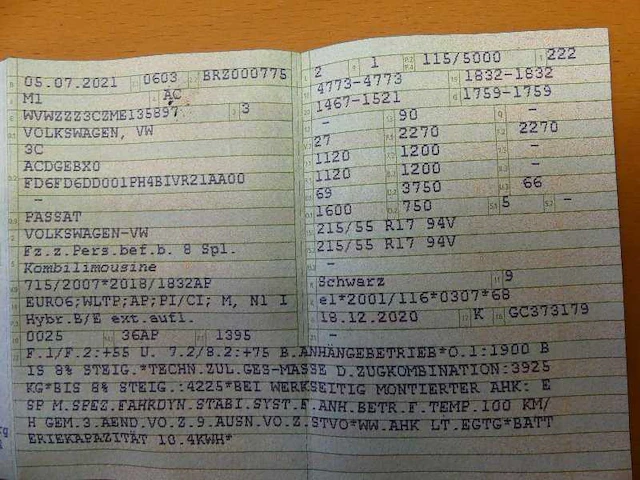 05.07.2021 0603 BRZ000775
M1 AC
WVWZZZ3CZME135897 3
VOLKSWAGEN, VW
3C
ACDGEBX0
FD6FD6DD001PH4BIVR21AA00
-
PASSAT
VOLKSWAGEN-VW
Fz.z.Pers.bef.b. 8 Spl.
Kombilimousine
715/2007*2018/1832AP
EURO6;WLTP;AP;PI/CI; M, N1 I
Hybr.B/E ext.aufl.
0025 36AP 1395
2 1 115/5000 222
4773-4773 1832-1832
1467-1521 1759-1759
- 90 -
27 2270 2270
1120 1200 -
1120 1200 -
69 3750 66
1600 750 5 -
215/55 R17 94V
215/55 R17 94V
-
-
Schwarz 9
e1*2001/116*0307*68
18.12.2020 K GC373179
F.1/F.2:+55 U. 7.2/8.2:+75 B.ANHÄNGEBETRIEB*O.1:1900 B
IS 8% STEIG.*TECHN.ZUL.GES-MASSE D.ZUGKOMBINATION:3925
KG*BIS 8% STEIG.:4225*BEI WERKSEITIG MONTIERTER AHK: E
SP M.SPEZ.FAHRDYN.STABI.SYST.F.ANH.BETR.F.TEMP.100 KM/
H GEM.3.AEND.VO.Z.9.AUSN.VO.Z.STVO*WW.AHK LT.EGTG*BATT
ERIEKAPAZITÄT 10.4KWH*